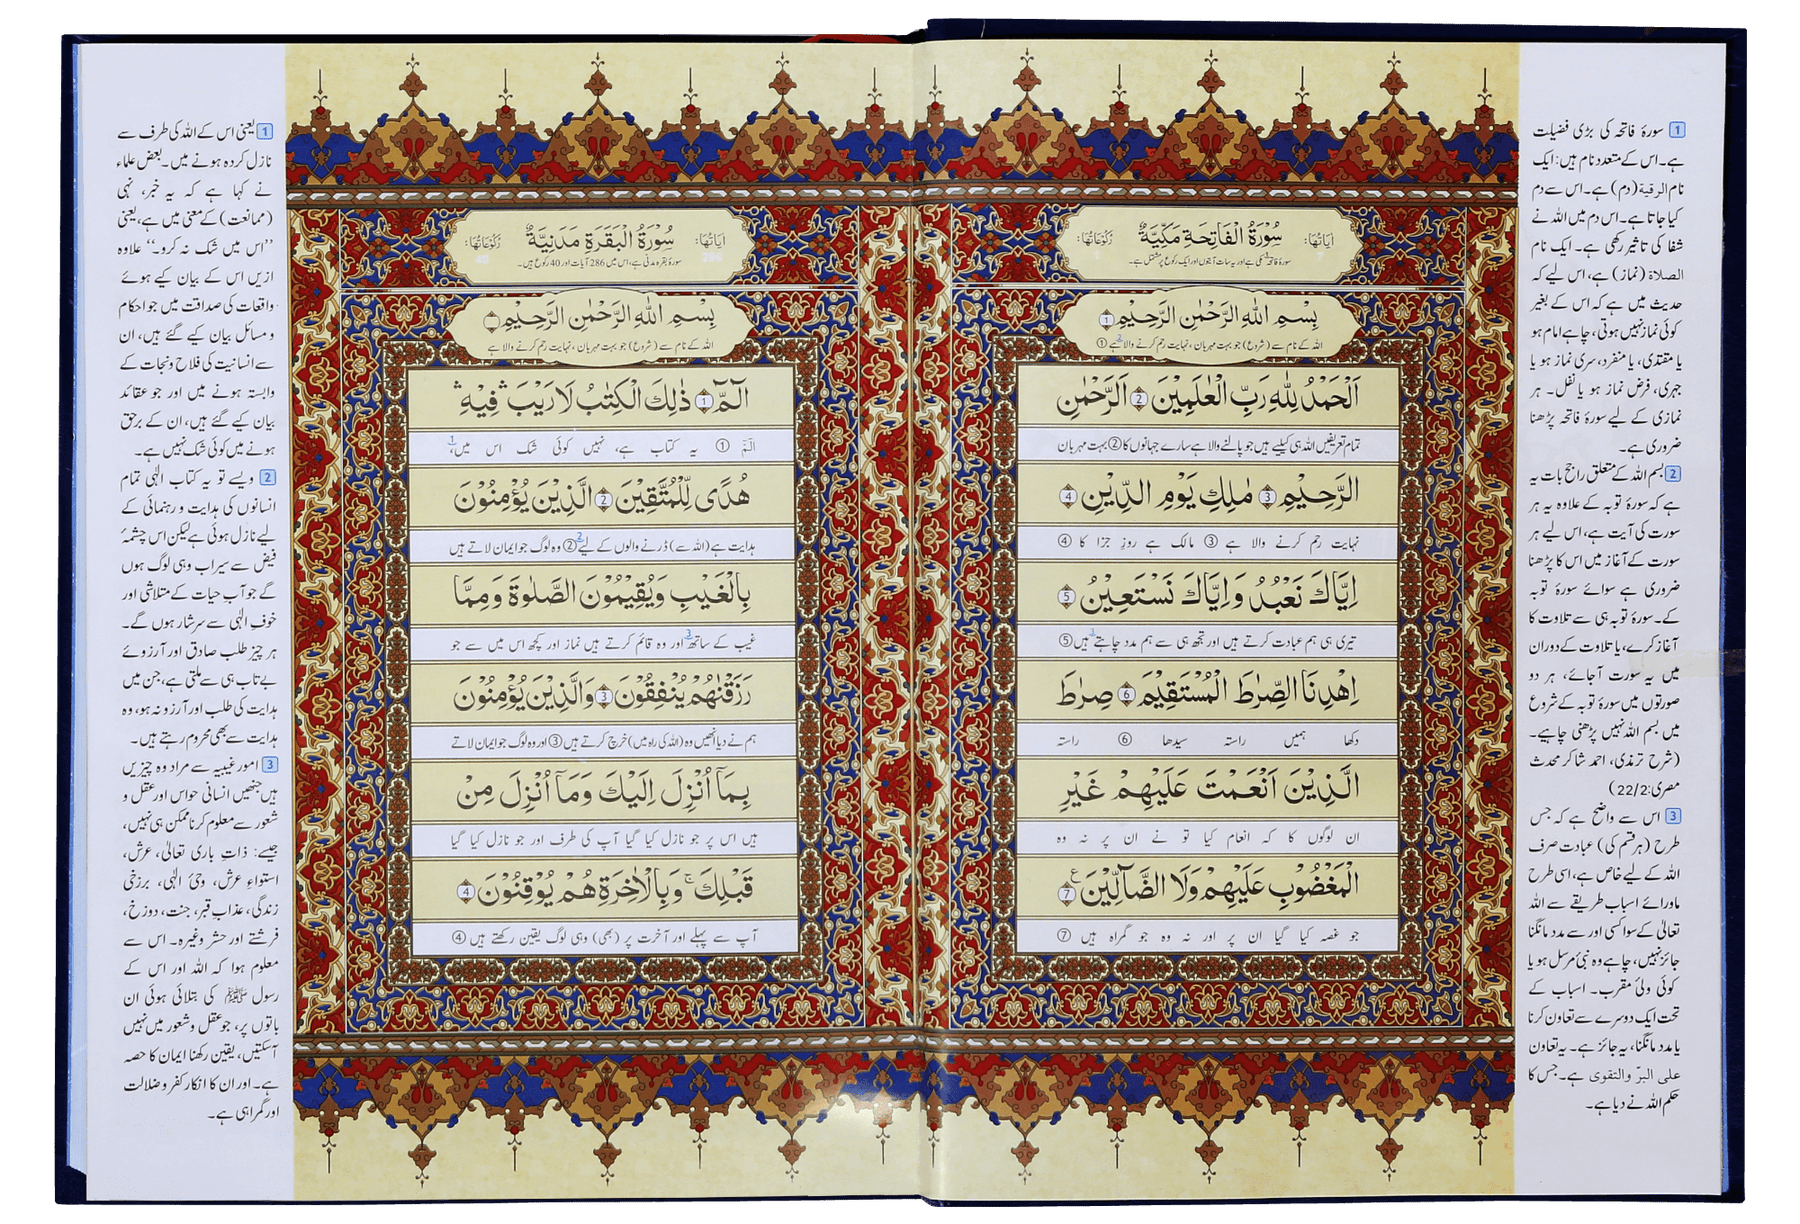 سُوْرَةُ الْفَاتِحَةِ مَكِّيَّةٌ
اٰيَاتُهَا:
رُكُوْعَاتُهَا:
سورۂ فاتحہ مکی ہے اور یہ سات آیتوں اور ایک رکوع پر مشتمل ہے۔
بِسْمِ اللّٰهِ الرَّحْمٰنِ الرَّحِيْمِ 1
اللہ کے نام سے (شروع) جو بہت مہربان، نہایت رحم کرنے والا ہے 2 ①
اَلْحَمْدُ لِلّٰهِ رَبِّ الْعٰلَمِيْنَ 2 الرَّحْمٰنِ
تمام تعریفیں اللہ ہی کیلیے ہیں جو پالنے والا ہے سارے جہانوں کا ② بہت مہربان
الرَّحِيْمِ 3 مٰلِكِ يَوْمِ الدِّيْنِ 4
نہایت رحم کرنے والا ہے ③ مالک ہے روزِ جزا کا ④
اِيَّاكَ نَعْبُدُ وَاِيَّاكَ نَسْتَعِيْنُ 5
تیری ہی ہم عبادت کرتے ہیں اور تجھ ہی سے ہم مدد چاہتے ہیں 3 ⑤
اِهْدِنَا الصِّرٰطَ الْمُسْتَقِيْمَ 6 صِرٰطَ
دکھا ہمیں راستہ سیدھا ⑥ راستہ
الَّذِيْنَ اَنْعَمْتَ عَلَيْهِمْ غَيْرِ
ان لوگوں کا کہ انعام کیا تو نے ان پر نہ وہ
الْمَغْضُوْبِ عَلَيْهِمْ وَلَا الضَّآلِّيْنَ ع 7
جو غصہ کیا گیا ان پر اور نہ وہ جو گمراہ ہیں ⑦
1 سورۂ فاتحہ کی بڑی فضیلت
ہے۔ اس کے متعدد نام ہیں: ایک
نام الرقية (دم) ہے۔ اس سے دم
کیا جاتا ہے۔ اس دم میں اللہ نے
شفا کی تاثیر رکھی ہے۔ ایک نام
الصلاة (نماز) ہے، اس لیے کہ
حدیث میں ہے کہ اس کے بغیر
کوئی نماز نہیں ہوتی، چاہے امام ہو
یا مقتدی، یا منفرد، سری نماز ہو یا
جہری، فرض نماز ہو یا نفل۔ ہر
نمازی کے لیے سورۂ فاتحہ پڑھنا
ضروری ہے۔
2 بسم اللہ کے متعلق راجح بات یہ
ہے کہ سورۂ توبہ کے علاوہ یہ ہر
سورت کی آیت ہے، اس لیے ہر
سورت کے آغاز میں اس کا پڑھنا
ضروری ہے سوائے سورۂ توبہ
کے۔ سورۂ توبہ ہی سے تلاوت کا
آغاز کرے، یا تلاوت کے دوران
میں یہ سورت آجائے، ہر دو
صورتوں میں سورۂ توبہ کے شروع
میں بسم اللہ نہیں پڑھنی چاہیے۔
(شرح ترمذی، احمد شاکر محدث
مصری: 22/2)
3 اس سے واضح ہے کہ جس
طرح (ہر قسم کی) عبادت صرف
اللہ کے لیے خاص ہے، اسی طرح
ماورائے اسباب طریقے سے اللہ
تعالیٰ کے سوا کسی اور سے مدد مانگنا
جائز نہیں، چاہے وہ نبیٔ مرسل ہو یا
کوئی ولیٔ مقرب۔ اسباب کے
تحت ایک دوسرے سے تعاون کرنا
یا مدد مانگنا، یہ جائز ہے۔ یہ تعاون
علی البرّ والتقوی ہے۔ جس کا
حکم اللہ نے دیا ہے۔
سُوْرَةُ الْبَقَرَةِ مَدَنِيَّةٌ
اٰيَاتُهَا: 286
رُكُوْعَاتُهَا: 40
سورۂ بقرہ مدنی ہے، اس میں 286 آیات اور 40 رکوع ہیں۔
بِسْمِ اللّٰهِ الرَّحْمٰنِ الرَّحِيْمِ
اللہ کے نام سے (شروع) جو بہت مہربان، نہایت رحم کرنے والا ہے
الٓمّٓ 1 ذٰلِكَ الْكِتٰبُ لَا رَيْبَ ۛ فِيْهِ ۛ
الٓمّٓ ① یہ کتاب ہے، نہیں کوئی شک اس میں، 1
هُدًى لِّلْمُتَّقِيْنَ 2 الَّذِيْنَ يُؤْمِنُوْنَ
ہدایت ہے (اللہ سے) ڈرنے والوں کے لیے 2 ② وہ لوگ جو ایمان لاتے ہیں
بِالْغَيْبِ وَيُقِيْمُوْنَ الصَّلٰوةَ وَمِمَّا
غیب کے ساتھ 3 اور وہ قائم کرتے ہیں نماز اور کچھ اس میں سے جو
رَزَقْنٰهُمْ يُنْفِقُوْنَ 3 وَالَّذِيْنَ يُؤْمِنُوْنَ
ہم نے دیا انھیں وہ (اللہ کی راہ میں) خرچ کرتے ہیں ③ اور وہ لوگ جو ایمان لاتے
بِمَآ اُنْزِلَ اِلَيْكَ وَمَآ اُنْزِلَ مِنْ
ہیں اس پر جو نازل کیا گیا آپ کی طرف اور جو نازل کیا گیا
قَبْلِكَ ۚ وَبِالْاٰخِرَةِ هُمْ يُوْقِنُوْنَ 4
آپ سے پہلے اور آخرت پر (بھی) وہی لوگ یقین رکھتے ہیں ④
1 یعنی اس کے اللہ کی طرف سے
نازل کردہ ہونے میں۔ بعض علماء
نے کہا ہے کہ یہ خبر، نہی
(ممانعت) کے معنی میں ہے، یعنی
”اس میں شک نہ کرو۔“ علاوہ
ازیں اس کے بیان کیے ہوئے
واقعات کی صداقت میں جو احکام
و مسائل بیان کیے گئے ہیں، ان
سے انسانیت کی فلاح و نجات کے
وابستہ ہونے میں اور جو عقائد
بیان کیے گئے ہیں، ان کے برحق
ہونے میں کوئی شک نہیں ہے۔
2 ویسے تو یہ کتاب الٰہی تمام
انسانوں کی ہدایت و رہنمائی کے
لیے نازل ہوئی ہے لیکن اس چشمۂ
فیض سے سیراب وہی لوگ ہوں
گے جو آبِ حیات کے متلاشی اور
خوفِ الٰہی سے سرشار ہوں گے۔
ہر چیز طلب صادق اور آرزوئے
بے تاب ہی سے ملتی ہے، جن میں
ہدایت کی طلب اور آرزو نہ ہو، وہ
ہدایت سے بھی محروم رہتے ہیں۔
3 امور غیبیہ سے مراد وہ چیزیں
ہیں جنھیں انسانی حواس اور عقل و
شعور سے معلوم کرنا ممکن ہی نہیں،
جیسے: ذاتِ باری تعالیٰ، عرش،
استواءِ عرش، وحیٔ الٰہی، برزخی
زندگی، عذاب قبر، جنت، دوزخ،
فرشتے اور حشر وغیرہ۔ اس سے
معلوم ہوا کہ اللہ اور اس کے
رسول ﷺ کی بتلائی ہوئی ان
باتوں پر، جو عقل و شعور میں نہیں
آسکتیں، یقین رکھنا ایمان کا حصہ
ہے۔ اور ان کا انکار کفر و ضلالت
اور گمراہی ہے۔